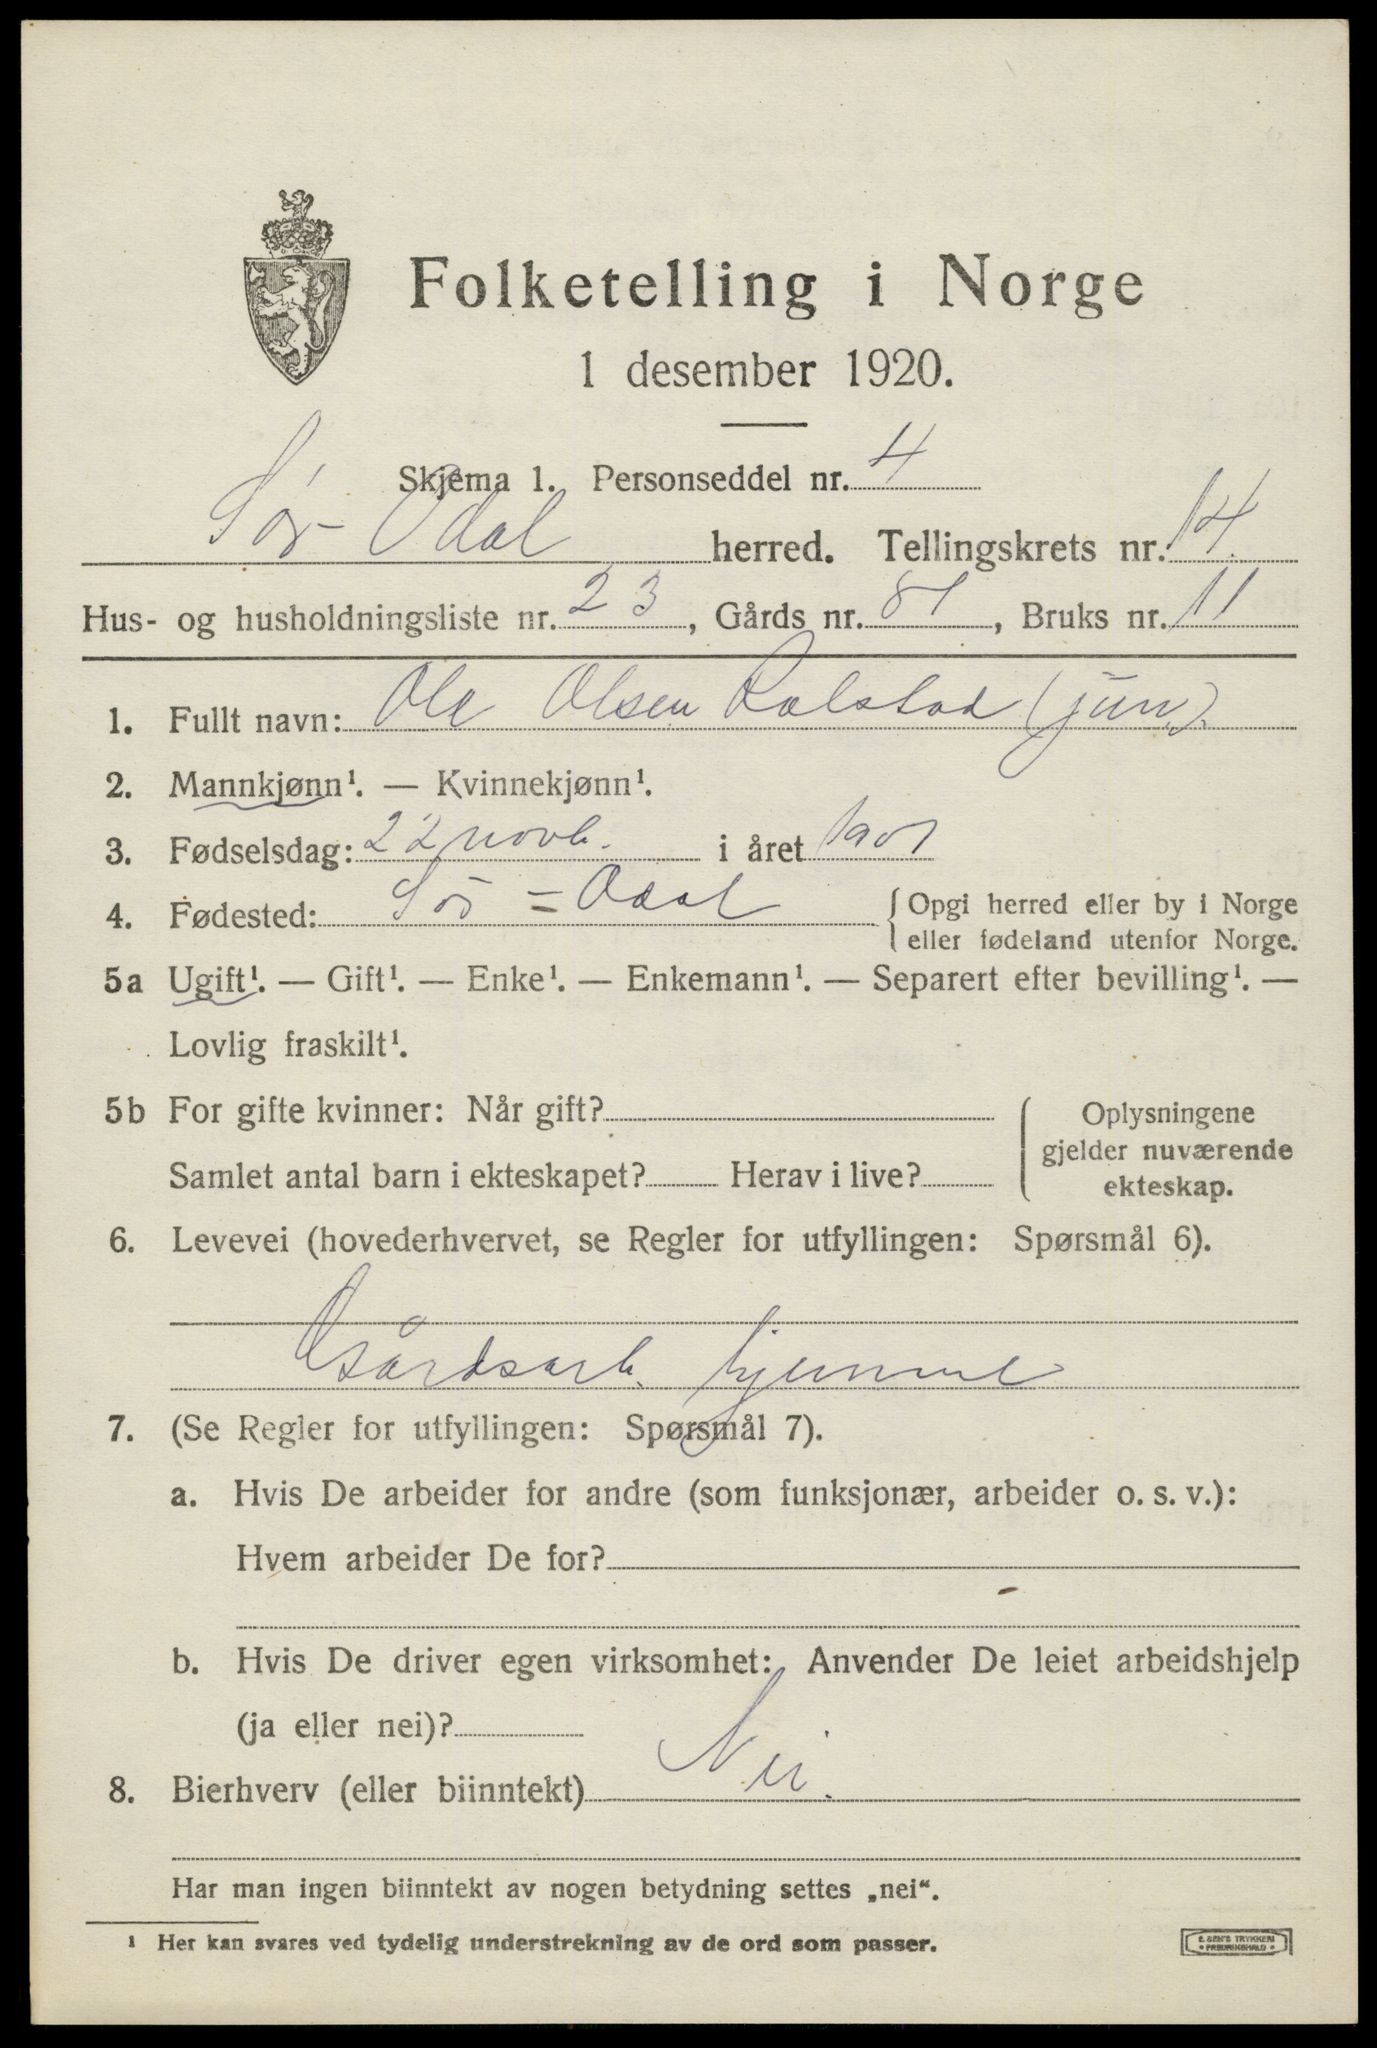 Folketelling i Norge
1 desember 1920.
Skjema 1. Personseddel nr. 4
Sør-Odal herred. Tellingskrets nr. 14
Hus- og husholdningsliste nr. 23, Gårds nr. 81, Bruks nr. 11
1. Fullt navn: Ole Olsen (jun).
2. Mannkjønn¹. — Kvinnekjønn¹.
3. Fødselsdag: 22 novb. i året 1901
4. Fødested: Sör=Odal { Opgi herred eller by i Norge
eller fødeland utenfor Norge.
5a Ugift¹. — Gift¹. — Enke¹. — Enkemann¹. — Separert efter bevilling¹. —
Lovlig fraskilt¹.
5b For gifte kvinner: Når gift?
Samlet antal barn i ekteskapet? Herav i live?
{ Oplysningene
gjelder nuværende
ekteskap.
6. Levevei (hovederhvervet, se Regler for utfyllingen: Spørsmål 6).
Gårdsarb. hjemme
7. (Se Regler for utfyllingen: Spørsmål 7).
a. Hvis De arbeider for andre (som funksjonær, arbeider o. s. v.):
Hvem arbeider De for?
b. Hvis De driver egen virksomhet: Anvender De leiet arbeidshjelp
(ja eller nei)?
8. Bierhverv (eller biinntekt) Nei.
Har man ingen biinntekt av nogen betydning settes „nei“.
¹ Her kan svares ved tydelig understrekning av de ord som passer.